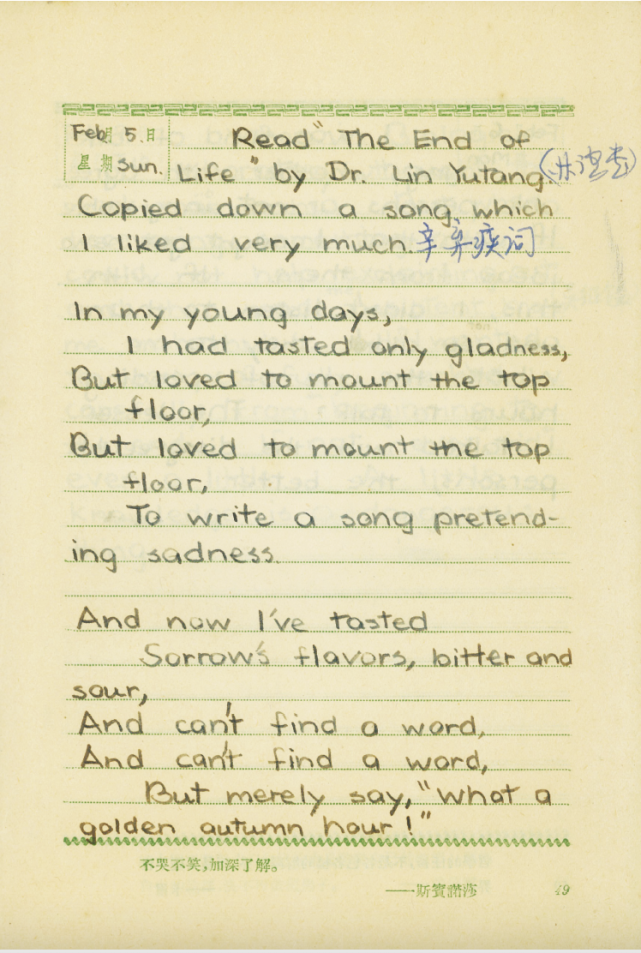 Feb月 5 日
星期 Sun.
Read "The End of
Life" by Dr. Lin Yutang. (林语堂)
Copied down a song which
I liked very much. 辛弃疾词
In my young days,
I had tasted only gladness,
But loved to mount the top
floor,
But loved to mount the top
floor,
To write a song pretend-
ing sadness.
And now I've tasted
Sorrow's flavors, bitter and
sour,
And can't find a word,
And can't find a word,
But merely say, "What a
golden autumn hour!"
不哭不笑，加深了解。
——斯賓諾莎
49